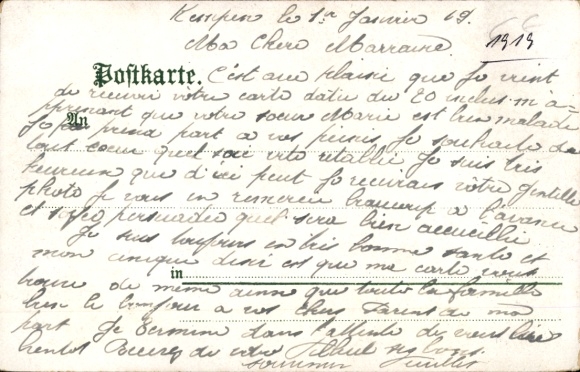 Kempen le 1er Janvier 19.
1919
Ma Chere Marraine
Postkarte. C'est avec plaisir que je vient
de recevoir votre carte datée du 20 m'a-
An
pprenant que votre soeur Marie est bien malade
Je prend part a vos peines Je souhaite de
tout coeur quel soi vite retablie Je suis très
heureux que d'ici peut Je recevrais vôtre gentille
photo Je vous en remercie beaucoup a l'avance
et soyez persuadée quel sera bien accueillie
Je suis toujours en très bonne santé et
mon unique desir est que ma carte vous
in
trouve de même ainsi que toute la famille
bien le bonjour a vos chers Parent de ma
part Je termine dans l'attente de vous lire
bientot Recevez de votre filleul ses bons
souvenir